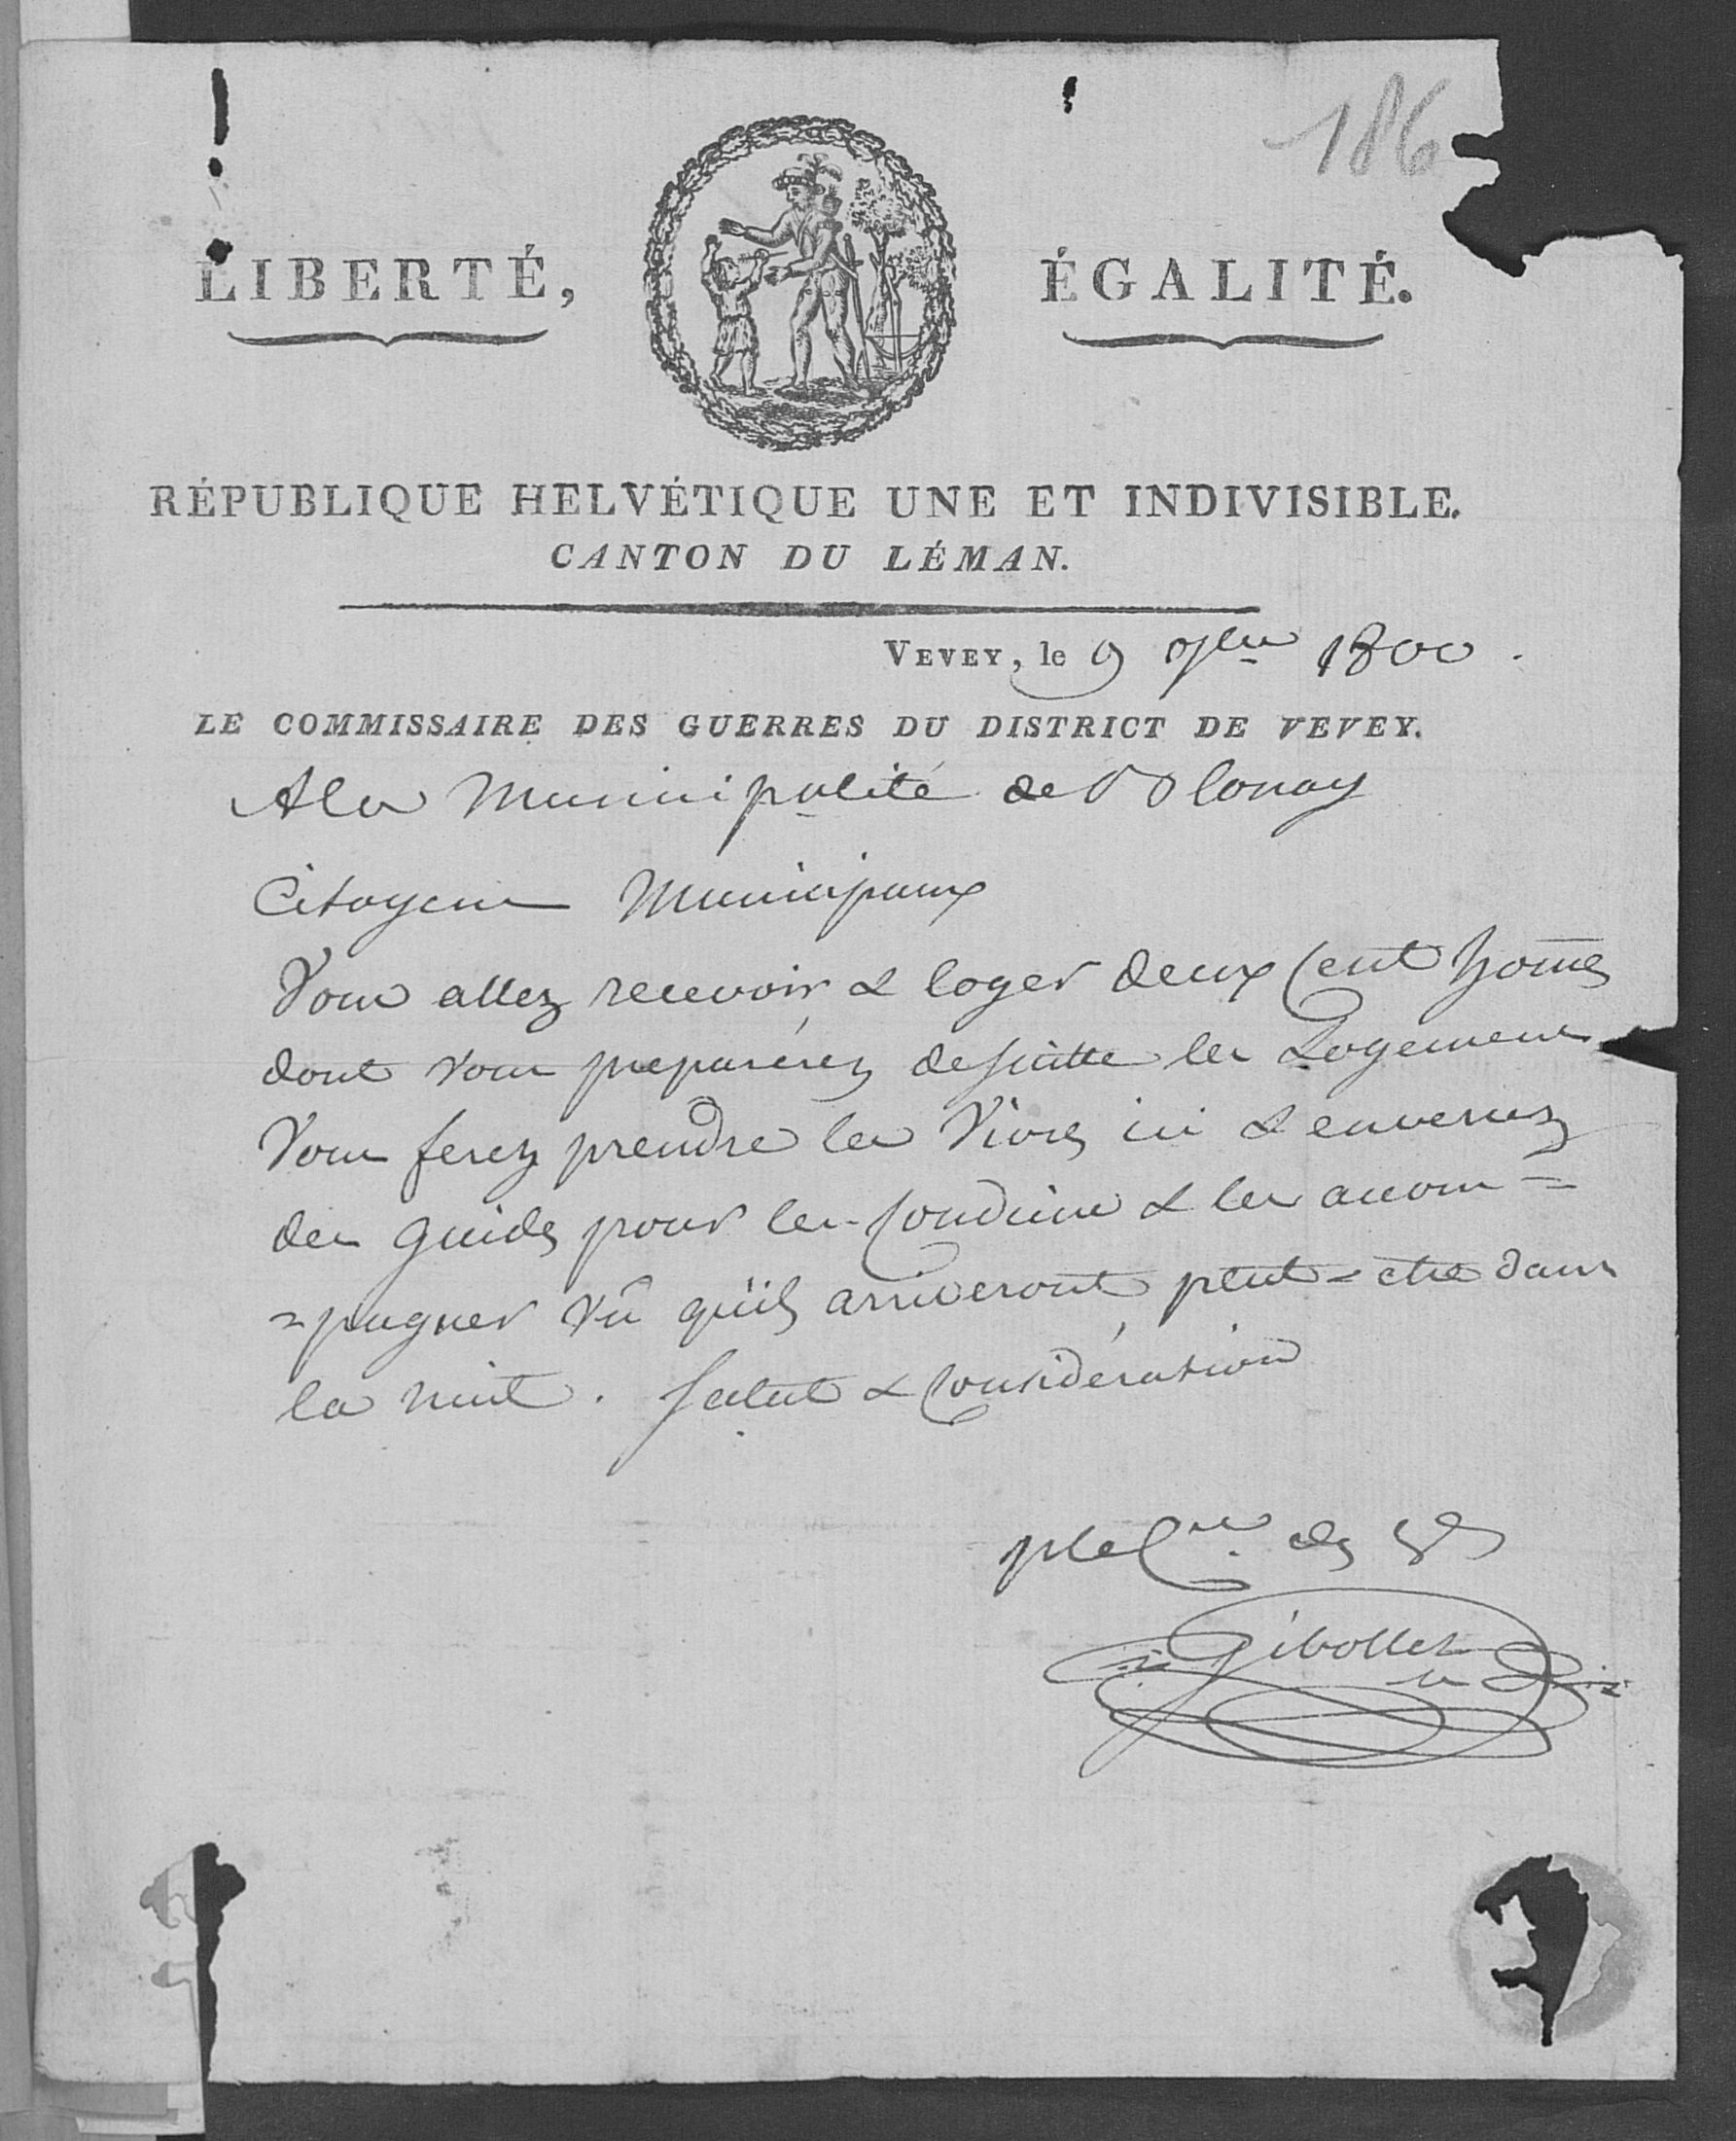 186
LIBERTÉ, ÉGALITÉ.
RÉPUBLIQUE HELVÉTIQUE UNE ET INDIVISIBLE.
CANTON DU LÉMAN.
VEVEY, le 9 1800.
LE COMMISSAIRE DES GUERRES DU DISTRICT DE VEVEY.
A la Municipalité de Blonay
Citoyens Municipaux
Vous allez recevoir & loger deux Cent hom̄es
dont vous preparérez desuitte les Logemens
Vous ferez prendre les Vivres ici & enverrez
des guides pour les Conduire & les accom=
=pagner vû qu'ils arriveront peut-etre dans
la nuit. Salut & Considération
ple Cre. des
Gibollet